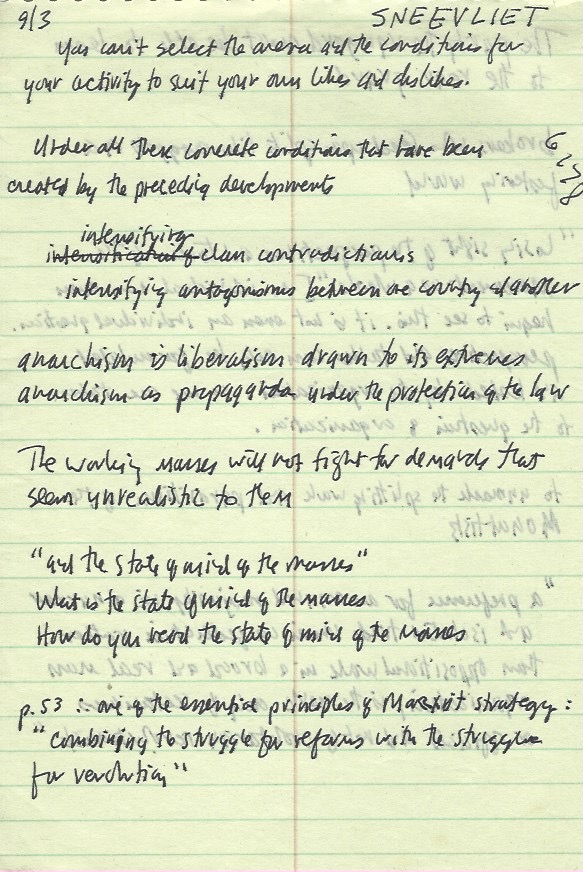 9/3 SNEEVLIET
You can't select the arena and the conditions for
your activity to suit your own likes and dislikes.
Under all these concrete conditions that have been
created by the preceding developments
intensifying
intensification of class contradictions
intensifying antagonisms between one country and another
anarchism is liberalism drawn to its extremes
anarchism as propaganda under the protection of the law
The working masses will not fight for demands that
seem unrealistic to them
"and the state of mind of the masses"
What is the state of mind of the masses
How do you read the state of mind of the masses
p.53 : one of the essential principles of Marxist strategy :
"combining to struggle for reforms with the struggle
for revolution"